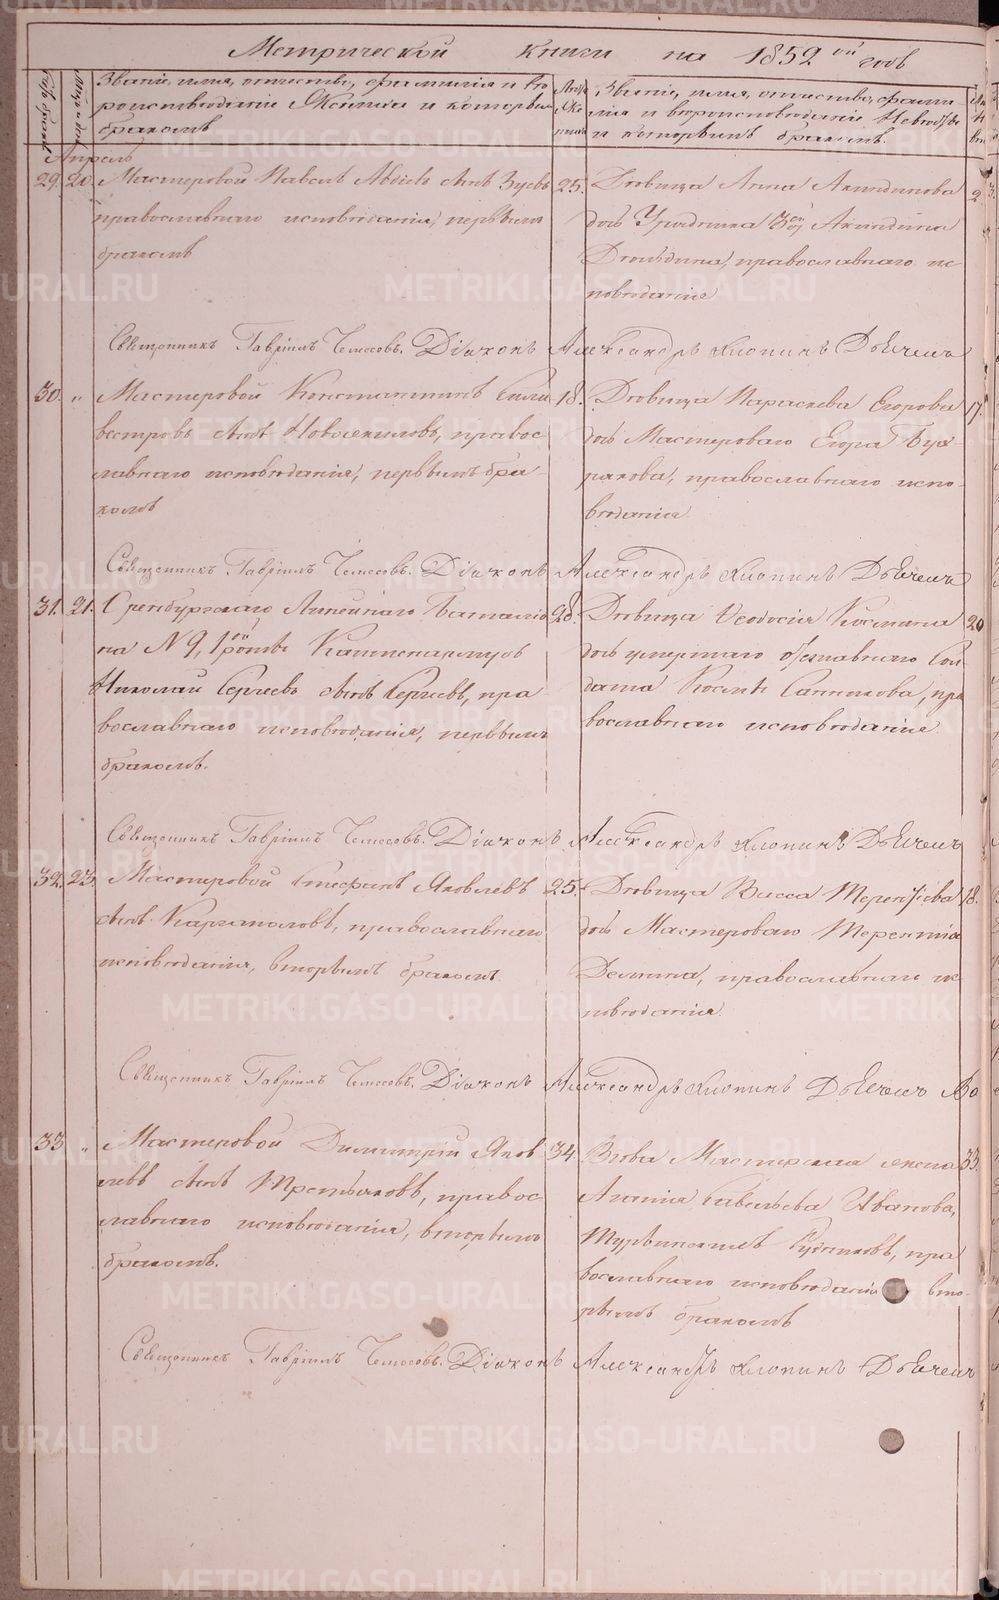 Метрической книги на 1852ой годъ
Званіе, имя, отчество, фамилія и вѣ
роисповѣданіе Жениха и которымъ
бракомъ
Званіе, имя, отчество, фами
лія и вѣроисповѣданіе Невѣсты
и которымъ бракомъ.
Апрель
29. 20. Мастеровой Павелъ Авдіевъ сынъ Зуевъ 25.
православнаго исповѣданія, первымъ
бракомъ
Дѣвица Анна Акиндинова
дочь Урядника 3ей Акиндина
православнаго ис
повѣданія
Священникъ Гавріилъ Діаконъ Александръ Клопинъ Дьячекъ
30. " Мастеровой Константинъ Сили 18.
вестровъ сынъ православ
славнаго исповѣданія, первымъ бра-
комъ
Дѣвица Параскева Егорова 17.
дочь Мастероваго Егора
православнаго испо-
вѣданія
Священникъ Гавріилъ Діаконъ Александръ Клопинъ Дьячекъ
31. 21. Оренбургскаго Линейнаго Баталіо 28.
на №9, 1ой роты Каптенармусъ
Николай Сергеевъ сынъ Сергеевъ, пра
вославнаго исповѣданія, первымъ
бракомъ.
Дѣвица Ѳеодосія Космина 20
дочь умершаго отставнаго Сол
дата Космы Санникова, пра
вославнаго исповѣданія
Священникъ Гавріилъ Діаконъ Александръ Клопинъ Дьячекъ
32. 23. Мастеровой Стефанъ Яковлевъ 25.
сынъ Каргаполовъ, православнаго
исповѣданія, вторымъ бракомъ
Дѣвица Васса Терентіева 18.
дочь Мастероваго Терентія
Демина, православнаго ис
повѣданія
Священникъ Гавріилъ Діаконъ Александръ Клопинъ Дьячекъ
33 " Мастеровой Димитрій Яков 34.
левъ сынъ Третьяковъ, правос
славнаго исповѣданія, вторымъ
бракомъ.
Вдова Мастерская жена 33.
Агапія Савельева Иванова,
пра
вославнаго исповѣданія вто-
рымъ бракомъ
Священникъ Гавріилъ Діаконъ Александръ Клопинъ Дьячекъ
METRIKI.GASO-URAL.RU